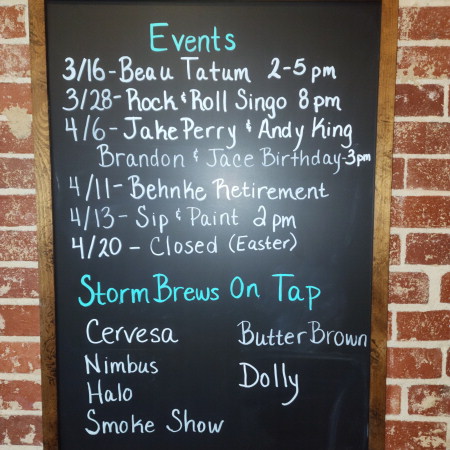 Events
3/16-Beau Tatum 2-5pm
3/28-Rock & Roll Singo 8pm
4/6-Jake Perry & Andy King
Brandon & Jace Birthday-3pm
4/11-Behnke Retirement
4/13-Sip & Paint 2pm
4/20-Closed (Easter)
Storm Brews On Tap
Cervesa
Butter Brown
Nimbus
Dolly
Halo
Smoke Show